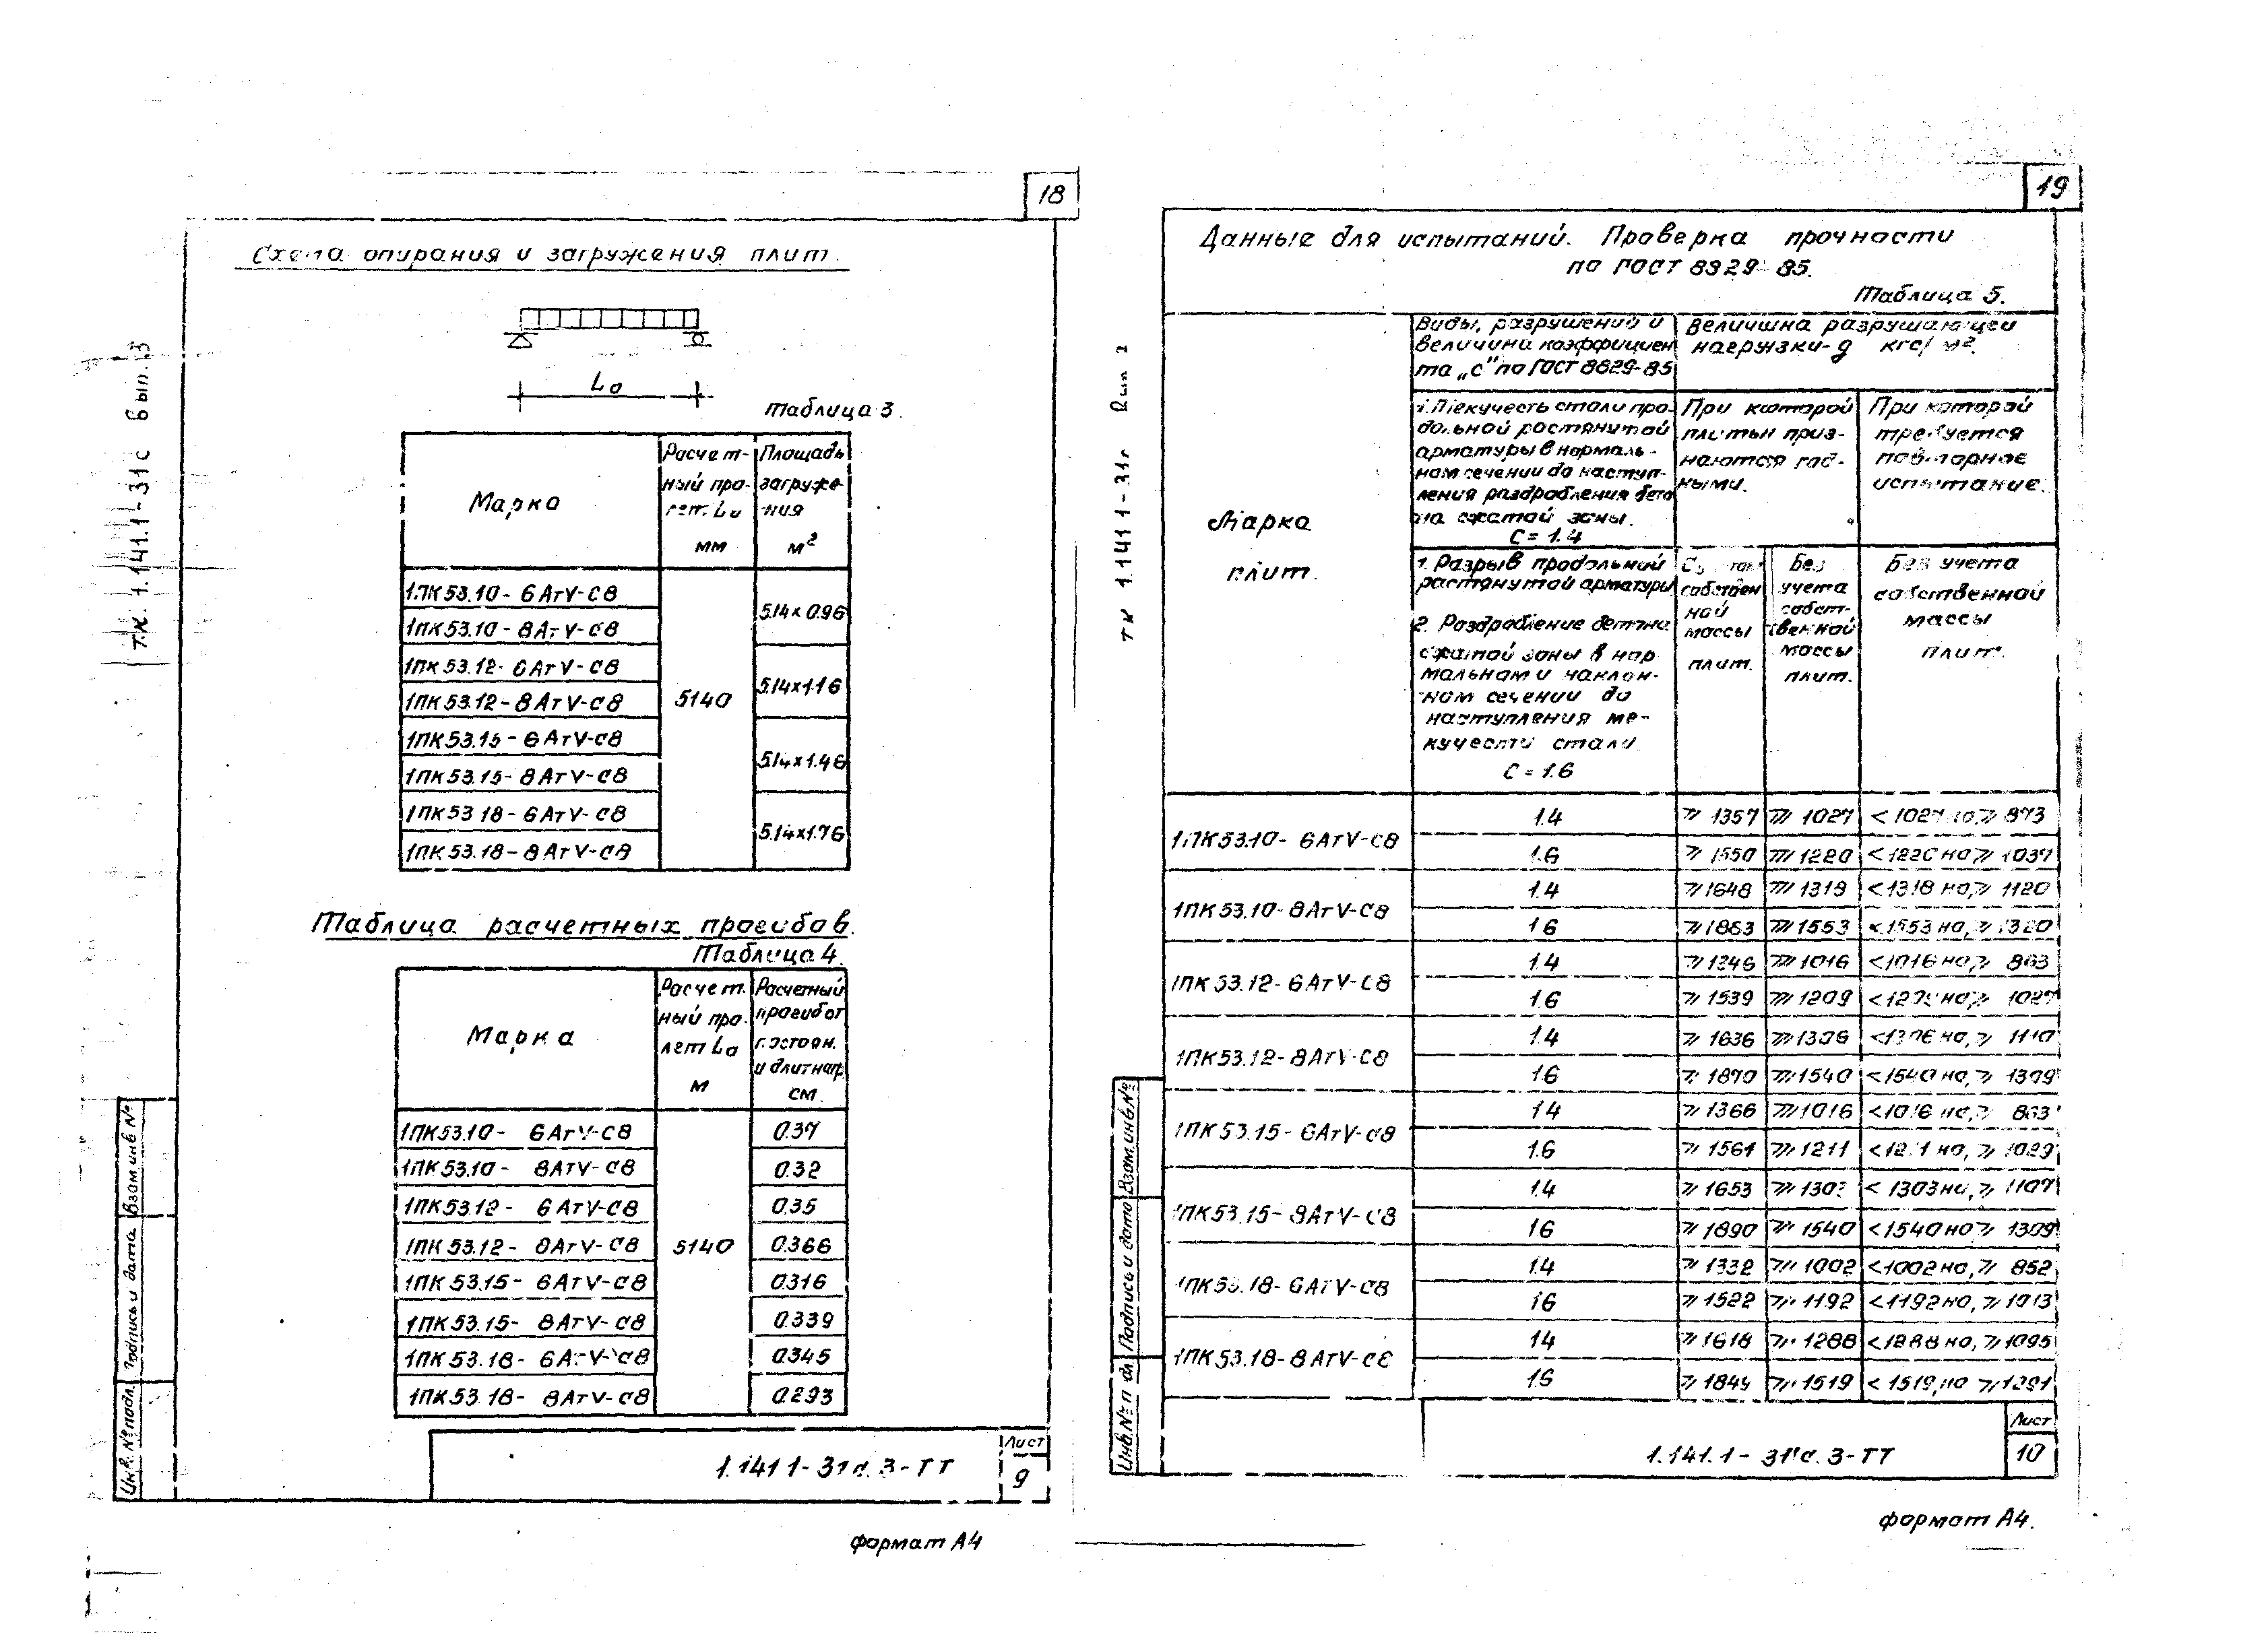 18
Схема опирания и загружения плит.
Lо
Таблица 3.
Марка
Расчет-
ный про-
лет Lо
мм
Площадь
загруже
ния
м²
1ПК53.10-6АтV-С8
1ПК53.10-8АтV-С8
1ПК53.12-6АтV-С8
1ПК53.12-8АтV-С8
1ПК53.15-6АтV-С8
1ПК53.15-8АтV-С8
1ПК53.18-6АтV-С8
1ПК53.18-8АтV-С8
5140
5.14×0.96
5.14×1.16
5.14×1.46
5.14×1.76
Таблица расчетных прогибов.
Таблица 4.
Марка
Расчет.
ный про.
лет Lо
м
Расчетный
прогиб от
постоян.
и длит нагр.
см.
1ПК53.10- 6АтV-С8 0.37
1ПК53.10- 8АтV-С8 0.32
1ПК53.12- 6АтV-С8 0.35
1ПК53.12- 8АтV-С8 5140 0.366
1ПК53.15- 6АтV-С8 0.316
1ПК53.15- 8АтV-С8 0.339
1ПК53.18- 6АтV-С8 0.345
1ПК53.18- 8АтV-С8 0.293
1.141 1-31с.3-ТТ
Лист
9
формат А4
Т.К. 1.141.1-31с вып.3
Инв.№ подл. Подпись и дата Взам.инв №
19
Данные для испытаний. Проверка прочности
по ГОСТ 8829-85.
Таблица 5.
Марка
плит.
Виды, разрушений и
величина коэффициен
та „С" по ГОСТ 8829-85
Величина разрушающей
нагрузки-q кгс/м².
1. Текучесть стали про-
дольной растянутой
арматуры в нормаль-
ном сечении до наступ-
ления раздробления бето
на сжатой зоны.
С = 1.4
При которой
плиты приз-
наются год-
ными.
При которой
требуется
повторное
испытание.
1. Разрыв продольной
растянутой арматуры
2. Раздробление бетона
сжатой зоны в нор
мальном и наклон-
ном сечении до
наступления те-
кучести стали
С = 1.6
собствен
ной
массы
плит.
Без
учета
собст-
венной
массы
плит.
Без учета
собственной
массы
плит.
1ПК53.10-6АтV-С8
1.4 ⩾ 1357 ⩾ 1027 < 1027 но,⩾ 873
1.6 ⩾ 1550 ⩾ 1220 < 1220 но ⩾ 1037
1ПК53.10-8АтV-С8
1.4 ⩾ 1648 ⩾ 1318 < 1318 но,⩾ 1120
1.6 ⩾ 1883 ⩾ 1553 < 1553 но,⩾ 1320
1ПК53.12-6АтV-С8
1.4 ⩾ 1346 ⩾ 1016 < 1016 но,⩾ 863
1.6 ⩾ 1539 ⩾ 1209 < 1209 но,⩾ 1027
1ПК53.12-8АтV-С8
1.4 ⩾ 1636 ⩾ 1306 < 1306 но,⩾ 1110
1.6 ⩾ 1870 ⩾ 1540 < 1540 но,⩾ 1309
1ПК53.15-6АтV-С8
1.4 ⩾ 1366 ⩾ 1016 < 1016 но,⩾ 863
1.6 ⩾ 1561 ⩾ 1211 < 1211 но,⩾ 1029
1ПК53.15-8АтV-С8
1.4 ⩾ 1653 ⩾ 1303 < 1303 но,⩾ 1107
1.6 ⩾ 1890 ⩾ 1540 < 1540 но ⩾ 1309
1ПК53.18-6АтV-С8
1.4 ⩾ 1332 ⩾ 1002 < 1002 но,⩾ 852
1.6 ⩾ 1522 ⩾ 1192 < 1192 но,⩾ 1013
1ПК53.18-8АтV-С8
1.4 ⩾ 1618 ⩾ 1288 < 1288 но,⩾ 1095
1.6 ⩾ 1849 ⩾ 1519 < 1519, но ⩾ 1291
1.141.1-31с.3-ТТ
Лист
10
формат А4.
ТК 1.141 1-31с
Инв.№ п дл. Подпись и дата Взам.инв.№